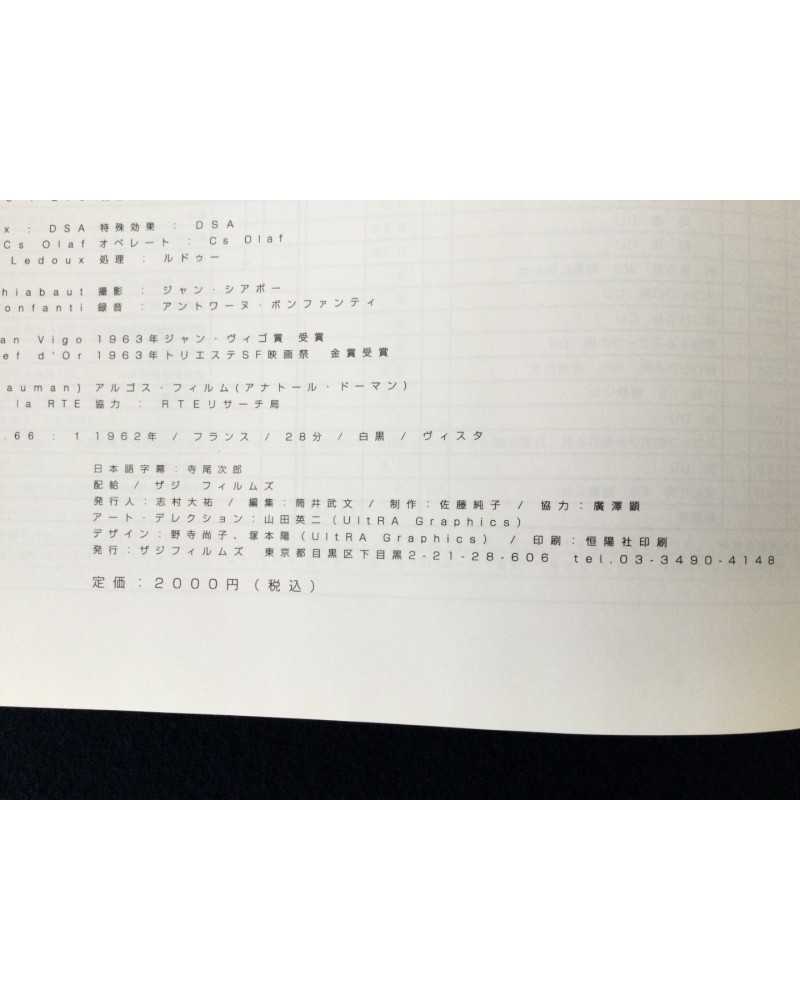 x : DSA 特殊効果 : DSA
Cs Olaf オペレート : Cs Olaf
Ledoux 処理 : ルドゥー
hiabaut 撮影 : ジャン・シアボー
onfanti 録音 : アントワーヌ・ボンファンティ
an Vigo 1963年ジャン・ヴィゴ賞 受賞
ef d'Or 1963年トリエステSF映画祭 金賞受賞
auman) アルゴス・フィルム(アナトール・ドーマン)
la RTE 協力 : RTEリサーチ局
.66 : 1 1962年 / フランス / 28分 / 白黒 / ヴィスタ
日本語字幕:寺尾次郎
配給 / ザジ フィルムズ
発行人:志村大祐 / 編集:筒井武文 / 制作:佐藤純子 / 協力:廣澤顕
アート・デレクション:山田英二(UltRA Graphics)
デザイン:野寺尚子、塚本陽(UltRA Graphics) / 印刷:恒陽社印刷
発行:ザジフィルムズ 東京都目黒区下目黒2-21-28-606 tel.03-3490-4148
定価:2000円(税込)